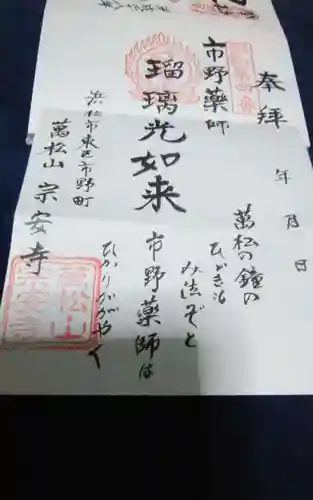 奉拝
年 月 日
市野薬師
瑠璃光如来
浜松市東区市野町
萬松山 宗安寺
萬松の鐘の
ひびきも
み法ぞと
市野薬師は
ひかりかがやく
萬松山
宗安寺